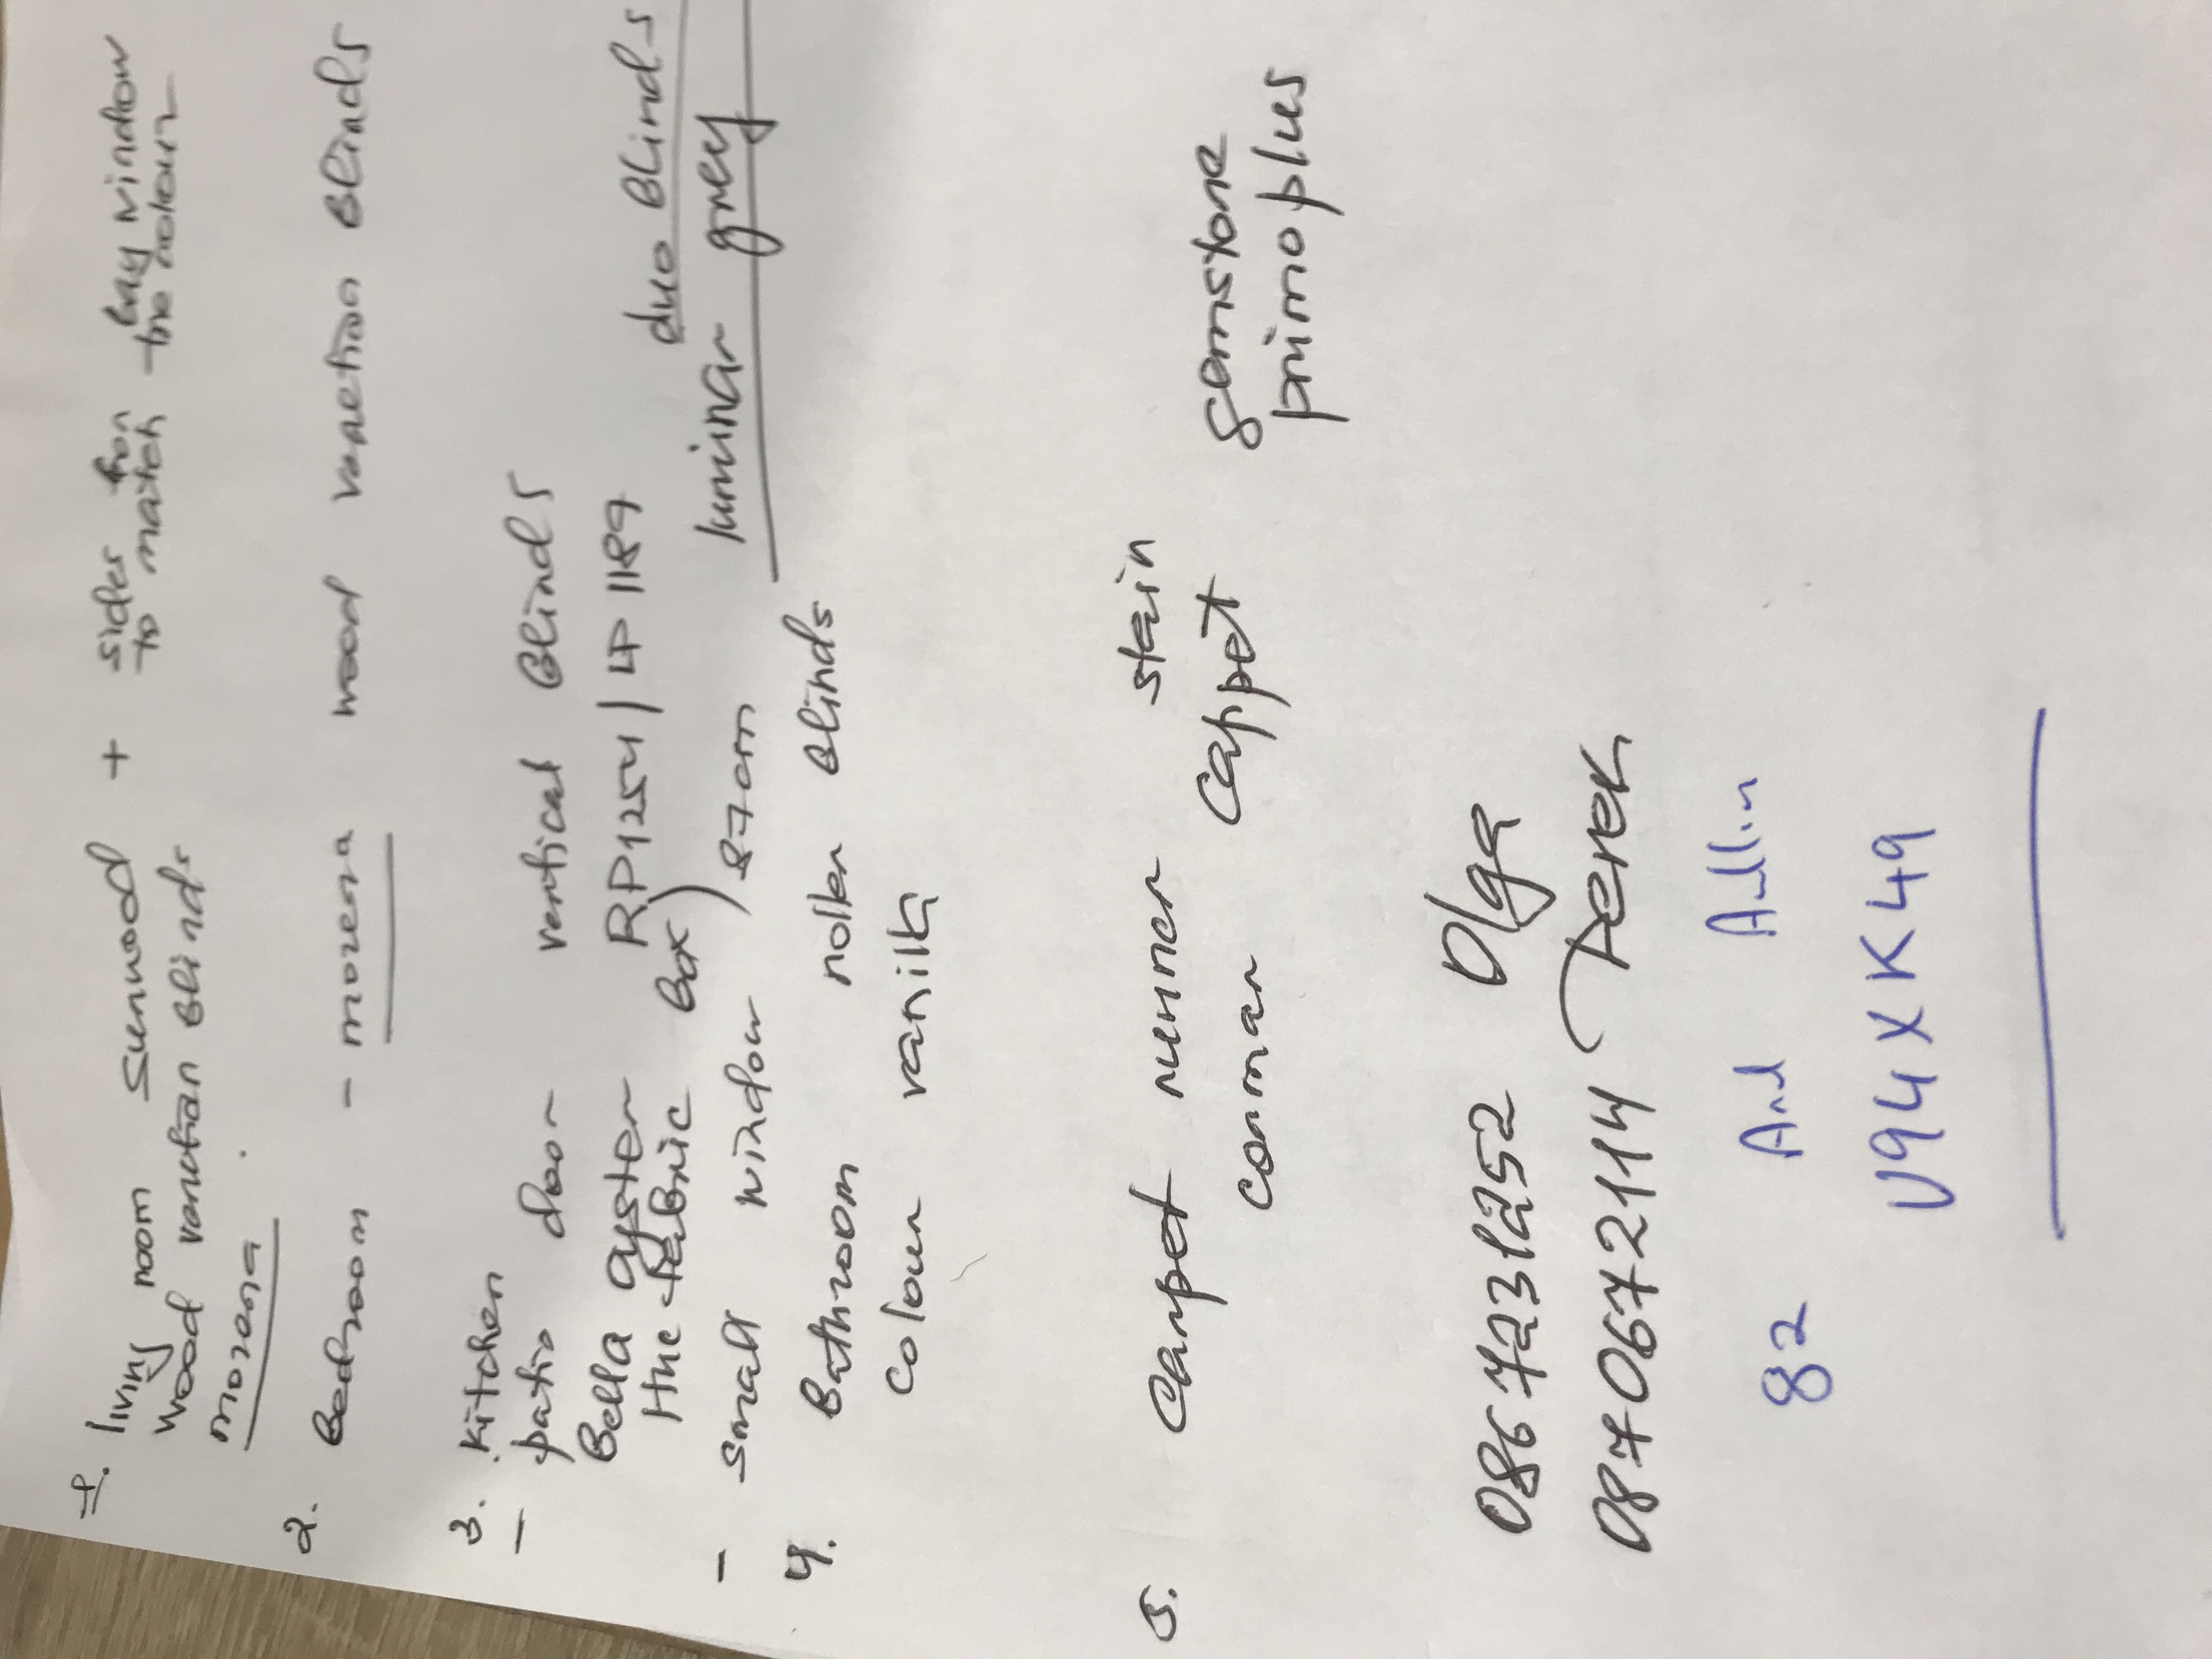 1. living room sunwood + sides for bay window
wood venetian Blinds to match the colour
mozena
2. Bedroom - mozena wood venetian Blinds
3. Kitchen
- patio door vertical Blinds
Bella oyster RP1254 / LP 1189
the fabric Box) duo Blinds
- small window ) 87cm luminar grey
4. Bathroom roller Blinds
colour vanilla
5. Carpet runner stain gemstone
corman cappet primo plus
086 7231252 Olga
087 0672114 Derek
82 Ard Aullin
V94XK49